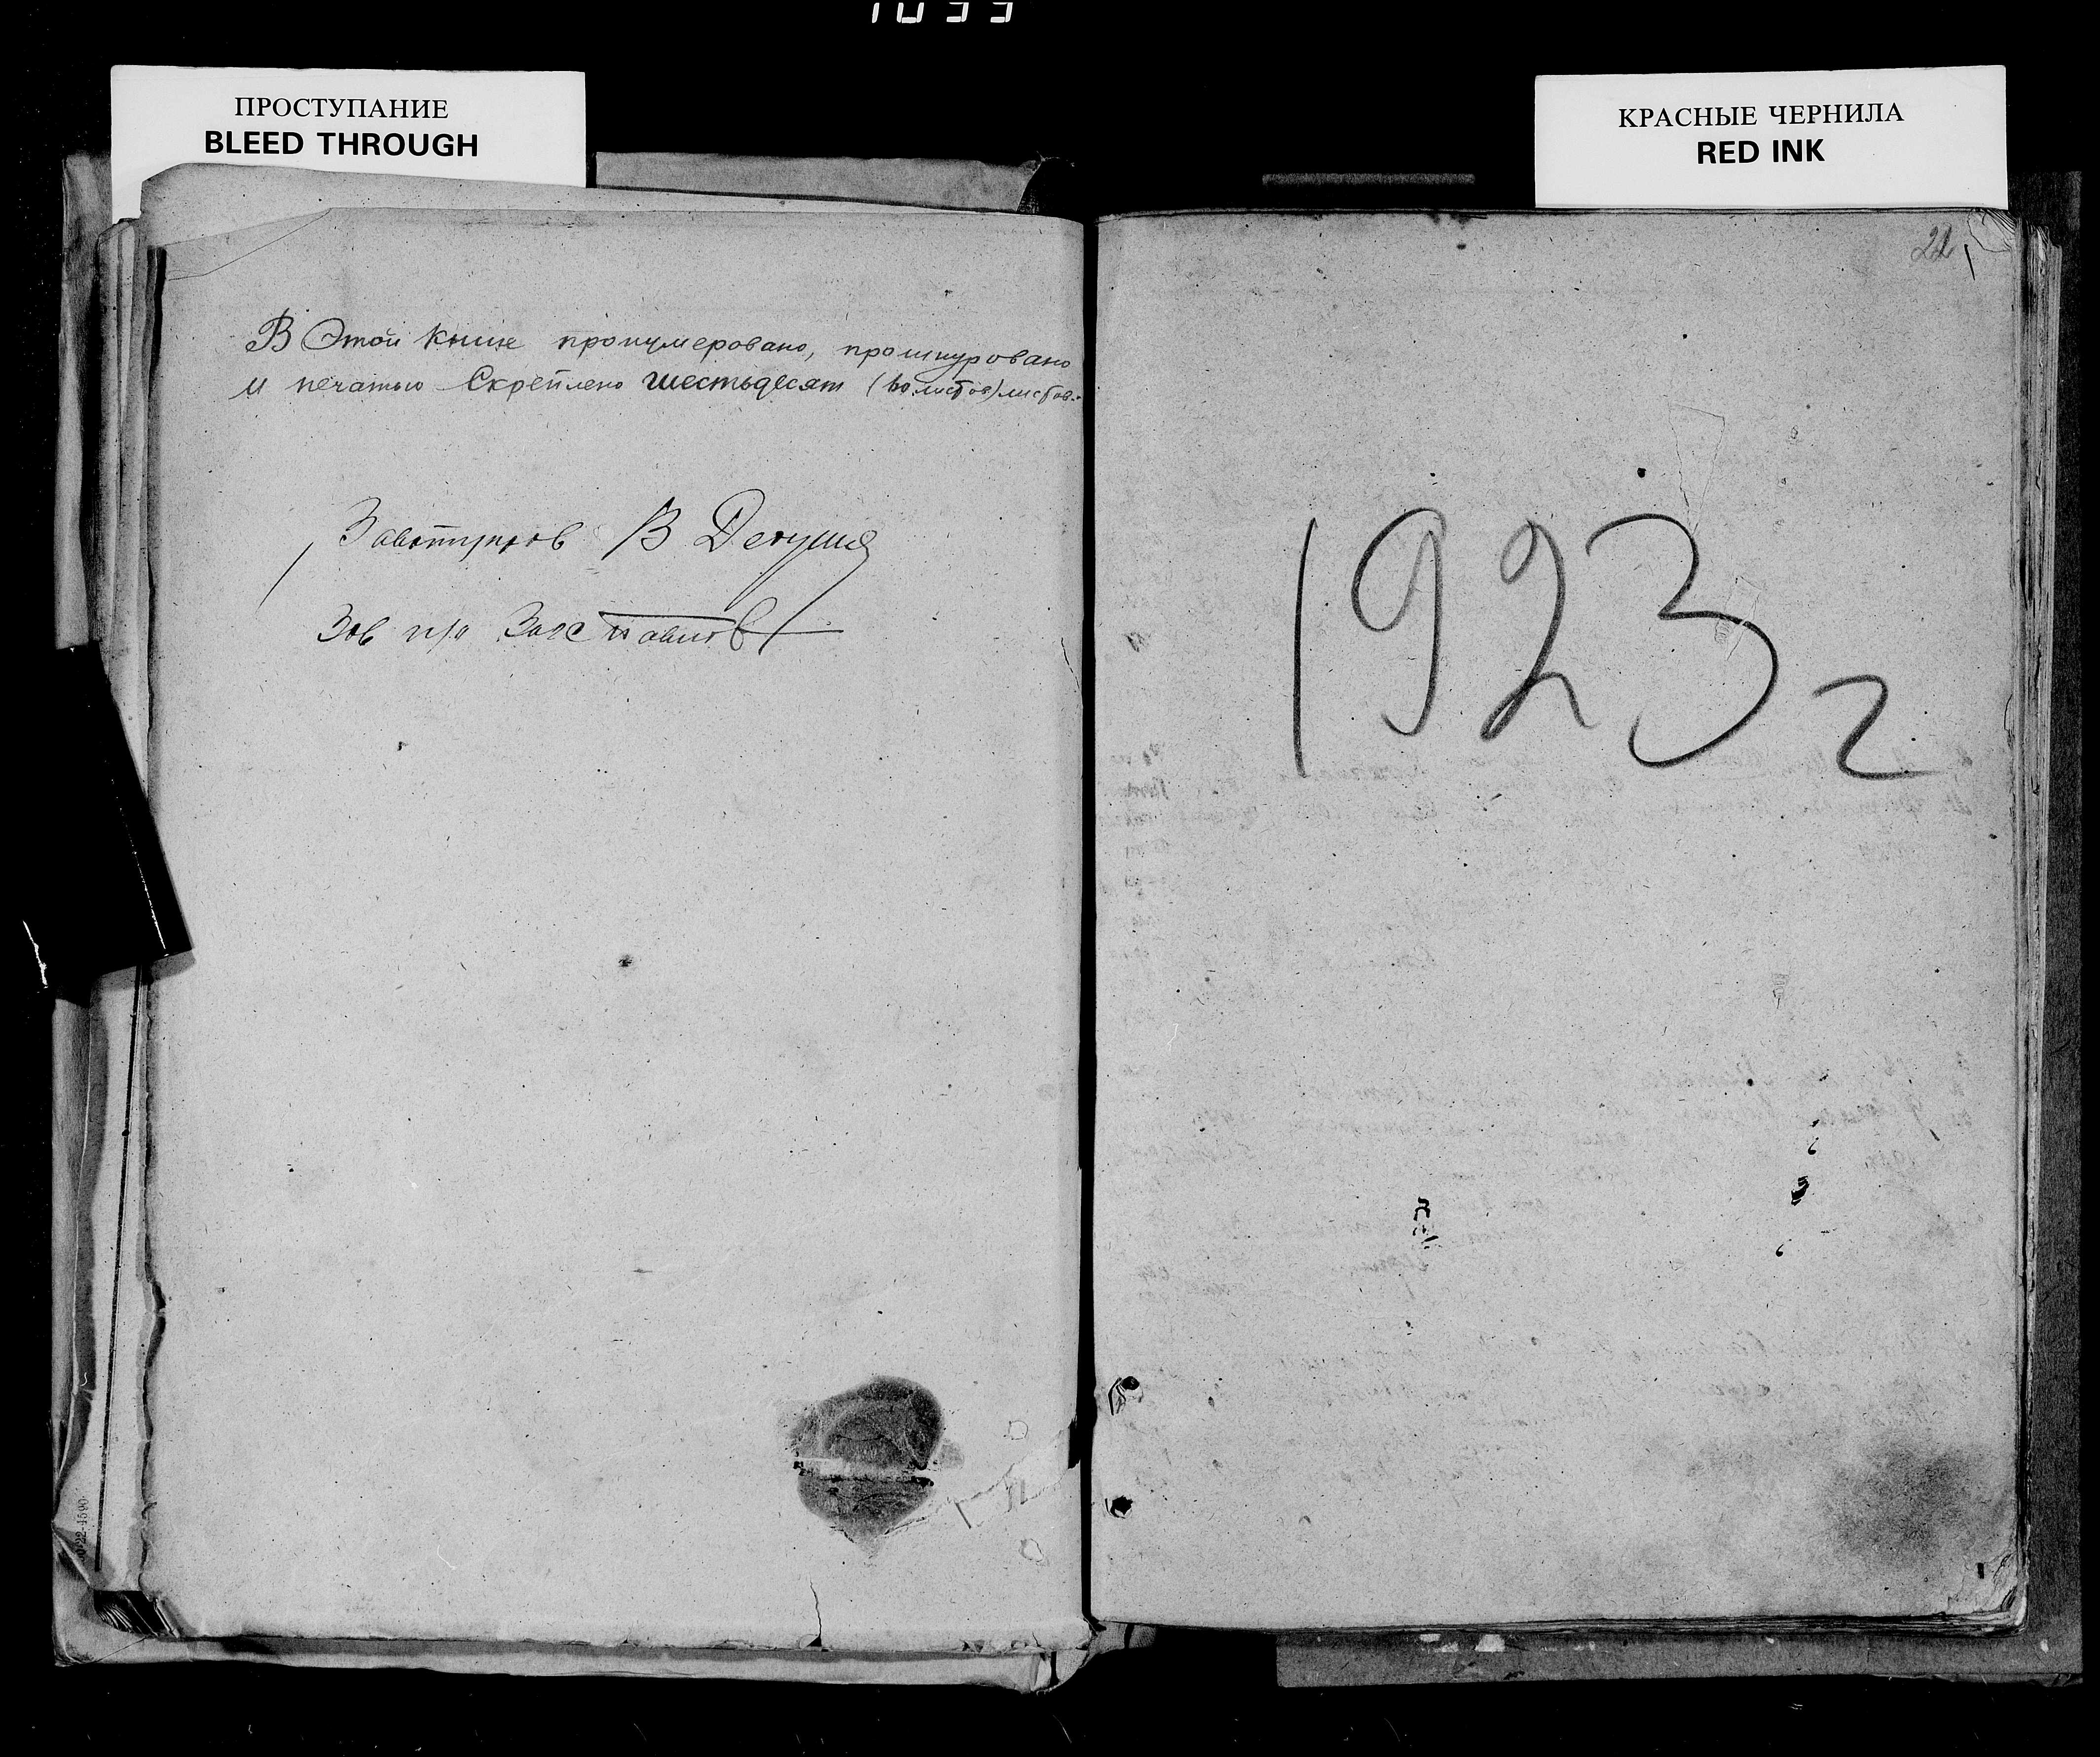 1033
ПРОСТУПАНИЕ
BLEED THROUGH
В Этой книге пронумеровано, прошнуровано
и печатью Скреплено шестьдесят (60 листов) листов.
В
Зав п/о Загс Павлов
КРАСНЫЕ ЧЕРНИЛА
RED INK
1923 г